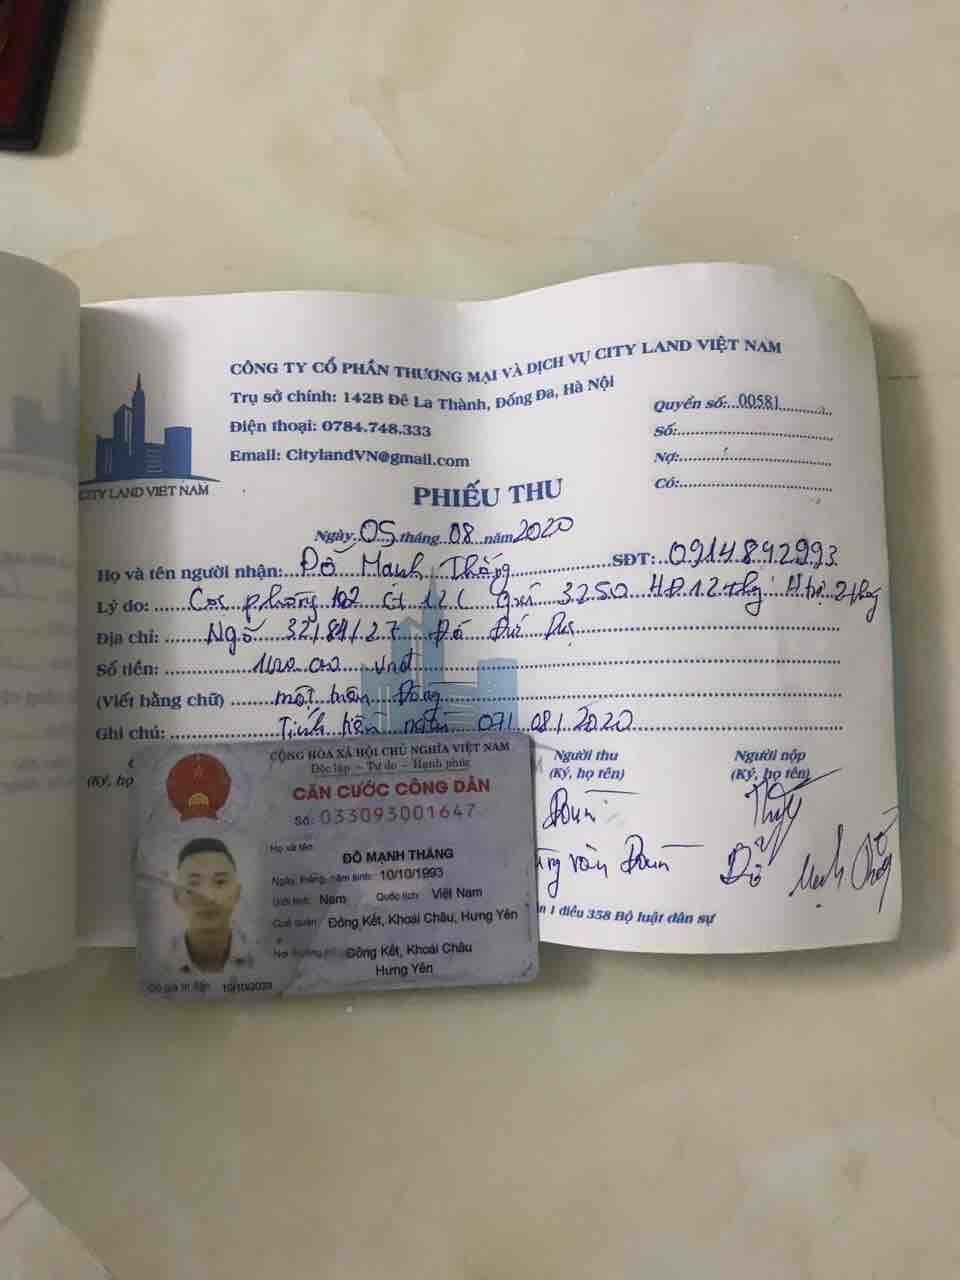 CÔNG TY CỔ PHẦN THƯƠNG MẠI VÀ DỊCH VỤ CITY LAND VIỆT NAM
Trụ sở chính: 142B Đê La Thành, Đống Đa, Hà Nội
Điện thoại: 0784.748.333
Email: CitylandVN@gmail.com
CITY LAND VIET NAM
Quyển số:...00581
Số:
Nợ:
Có:
PHIẾU THU
Ngày 05 tháng 08 năm 2020
Họ và tên người nhận: Đỗ Mạnh Thắng SĐT: 0914892993
Lý do: Cọc phòng 102 giá 3250 HĐ 12 thg
Địa chỉ: Ngõ 32
Số tiền: vnđ
(Viết bằng chữ) một triệu đồng
Ghi chú: Tính tiền ngày 07/08/2020
(Ký, họ
Người thu
(Ký, họ tên)
Người nộp
(Ký, họ tên)
văn Đoàn
Đỗ Mạnh Thắng
1 điều 358 Bộ luật dân sự
CỘNG HÒA XÃ HỘI CHỦ NGHĨA VIỆT NAM
Độc lập - Tự do - Hạnh phúc
CĂN CƯỚC CÔNG DÂN
Số: 033093001647
Họ và tên:
ĐỖ MẠNH THẮNG
Ngày, tháng, năm sinh: 10/10/1993
Giới tính: Nam Quốc tịch: Việt Nam
Quê quán: Đồng Kết, Khoái Châu, Hưng Yên
Nơi thường trú: Đồng Kết, Khoái Châu
Hưng Yên
Có giá trị đến: 10/10/2033